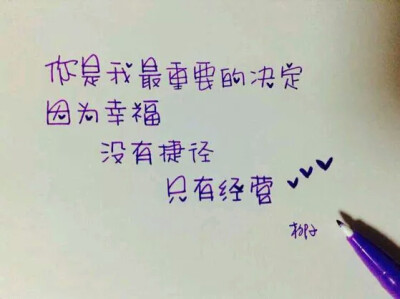 你是我最重要的决定
因为幸福
没有捷径
只有经营